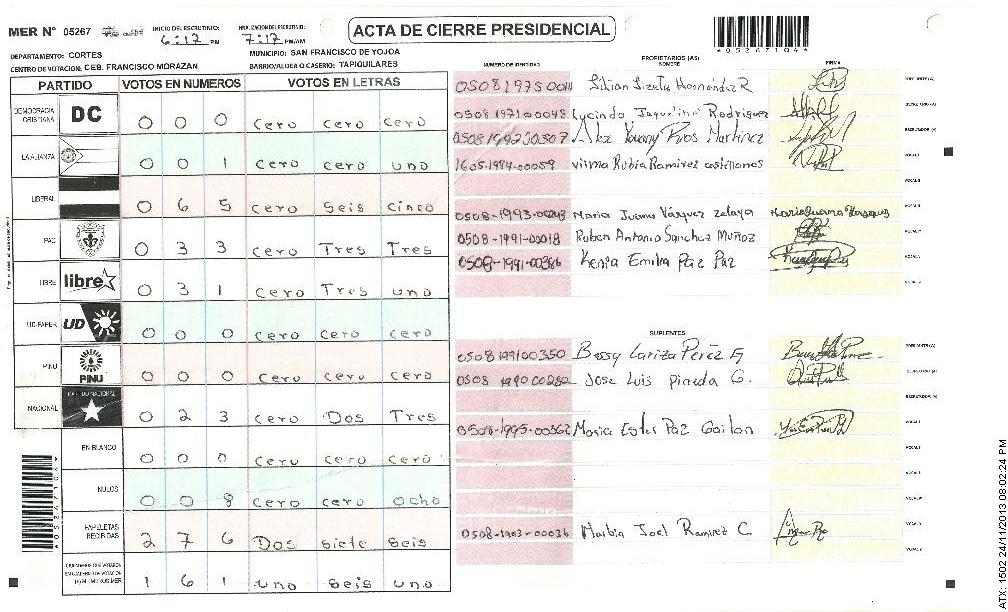 MER Nº 05267
INICIO DEL ESCRUTINIO:
6:12 PM
FINALIZACION DEL ESCRUTINIO:
7:17 PM/AM
ACTA DE CIERRE PRESIDENCIAL
*05267104*
DEPARTAMENTO: CORTES
MUNICIPIO: SAN FRANCISCO DE YOJOA
CENTRO DE VOTACION: CEB. FRANCISCO MORAZAN
BARRIO/ALDEA O CASERIO: TAPIQUILARES
PARTIDO VOTOS EN NUMEROS VOTOS EN LETRAS
DEMOCRACIA CRISTIANA DC 0 0 0 cero cero cero
LA ALIANZA 0 0 1 cero cero uno
LIBERAL 0 6 5 cero seis cinco
PAC 0 3 3 cero Tres Tres
LIBRE libre 0 3 1 cero Tres uno
UD-FAPER UD 0 0 0 cero cero cero
PINU PINU 0 0 0 cero cero cero
NACIONAL PARTIDO NACIONAL 0 2 3 cero Dos Tres
EN BLANCO 0 0 0 cero cero cero
NULOS 0 0 8 cero cero ocho
PAPELETAS RECIBIDAS 2 7 6 Dos siete seis
1 6 1 uno seis uno
NUMERO DE IDENTIDAD
PROPIETARIOS (AS)
NOMBRE
FIRMA
Lilian Sizela Hernández R
PRESIDENTE (A)
0508 1971 00048 Lucinda Jaqueline Rodriguez
SECRETARIO (A)
0508 1992 30507
Martinez
ESCRUTADOR (A)
1605-1984-00059 Vilma Rubia Ramirez castellanos
VOCAL I
VOCAL II
Maria Juana Vásquez Zelaya Maria Juana Vasquez
0508-1991-00018 Ruben Antonio Sanchez Muñoz
0508-1991-00386 Kenia Emilia Paz Paz
SUPLENTES
0508 1991 00350 Bessy Lariza Perez
PRESIDENTE (A)
0508 1990 00282 Jose Luis Pineda G.
SECRETARIO (A)
ESCRUTADOR (A)
0508-1995-00362 Maria Ester Paz Gaitan
VOCAL I
Joel Ramirez C.
*05267104*
ATX: 1502 24/11/2013 08:02:24 PM